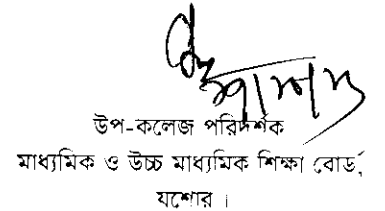 উপ-কলেজ পরিদর্শক
মাধ্যমিক ও উচ্চ মাধ্যমিক শিক্ষা বোর্ড,
যশোর ।